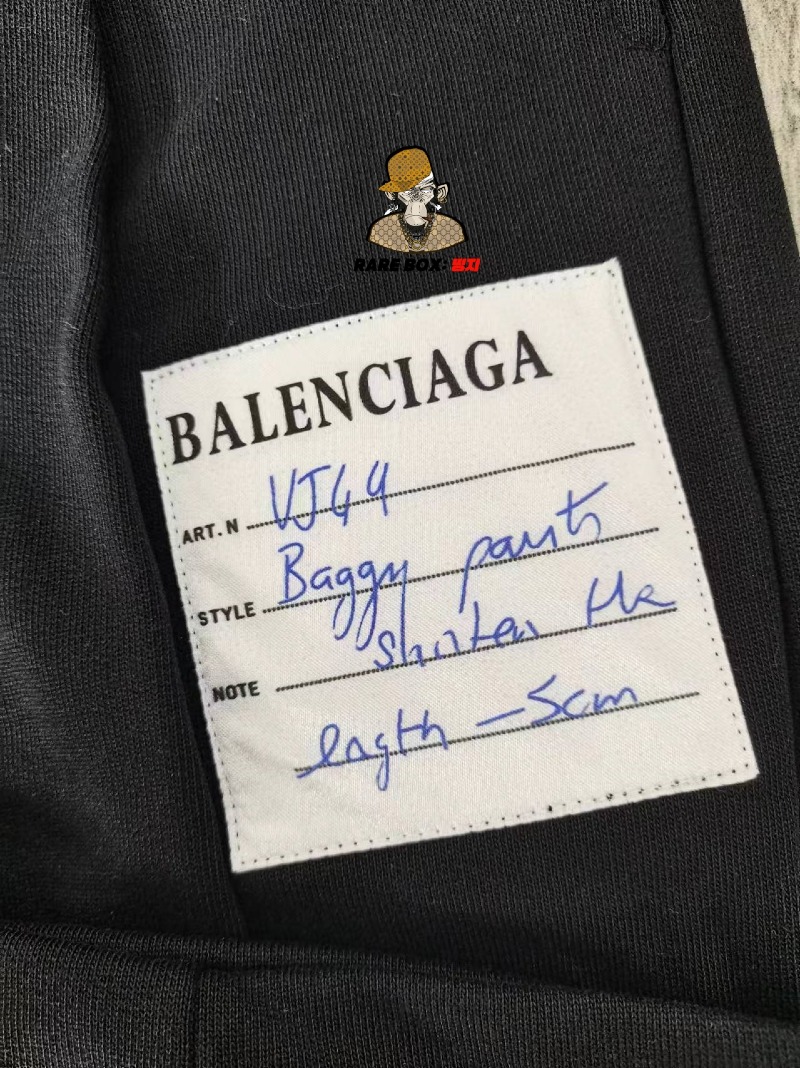 RARE BOX: 빙지
BALENCIAGA
ART. N VJ44
STYLE Baggy pants
NOTE shorten the
length -5cm